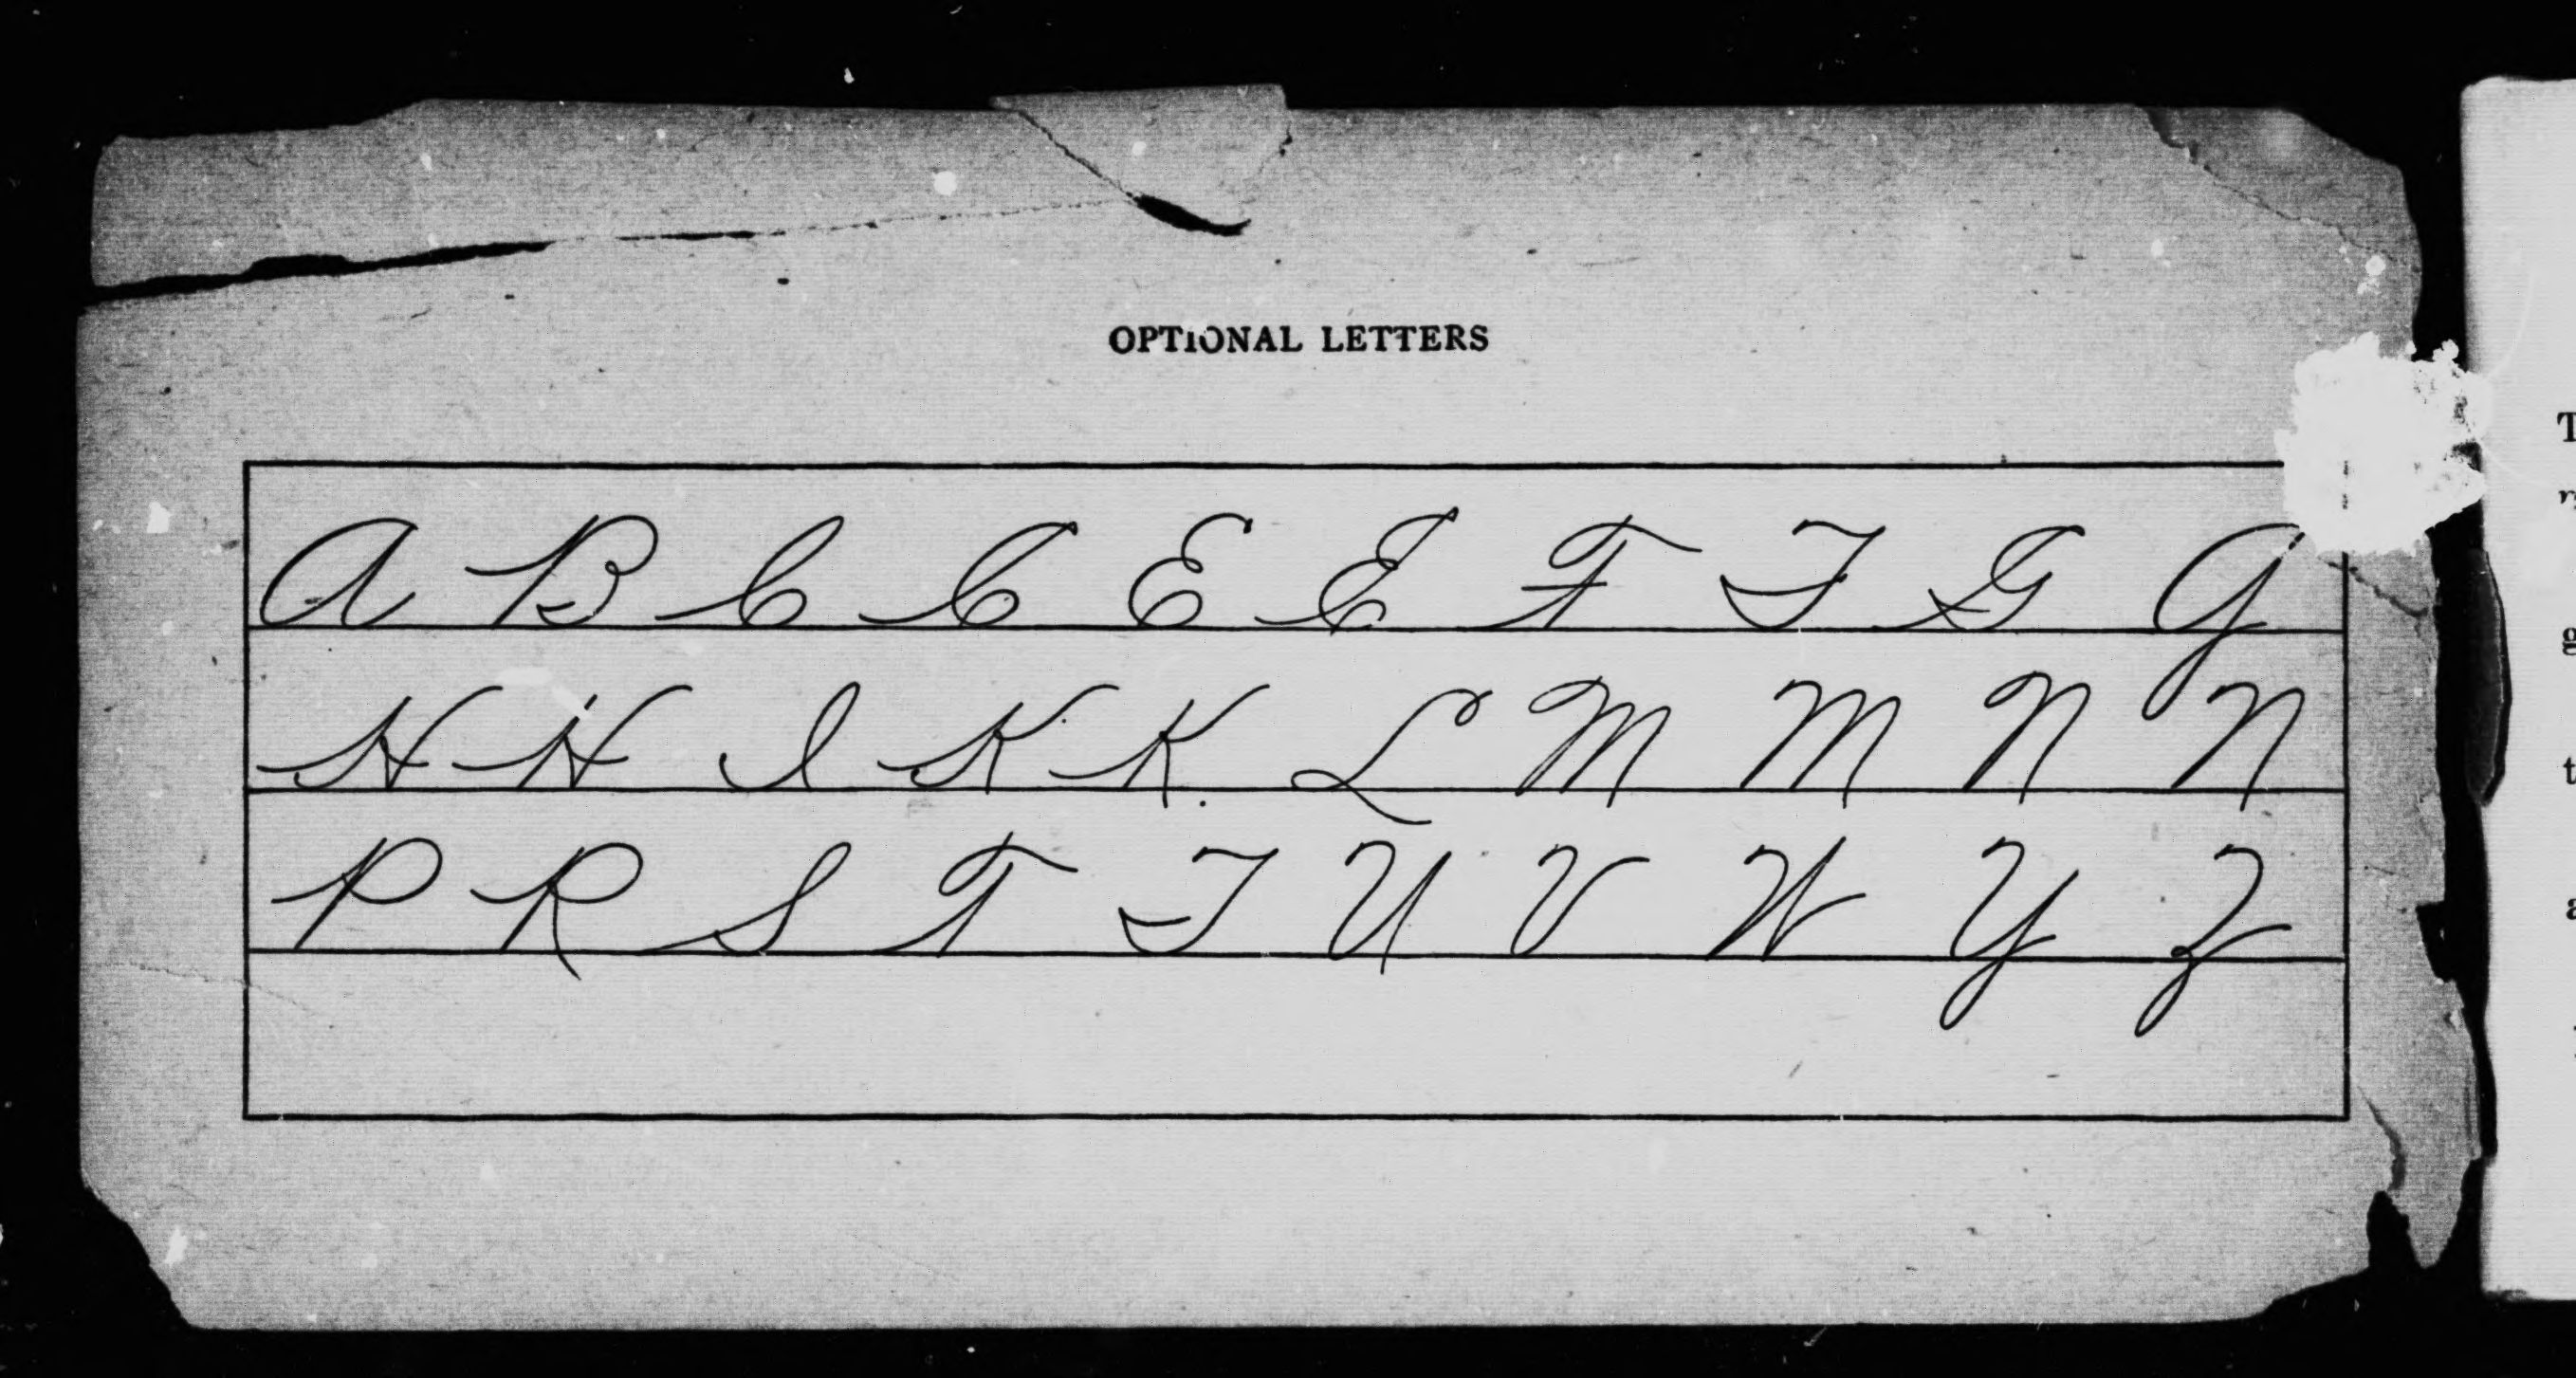 OPTIONAL LETTERS
A B C C E E F F G G
H H I K K L M M N N
P R S T T U V W Y Z